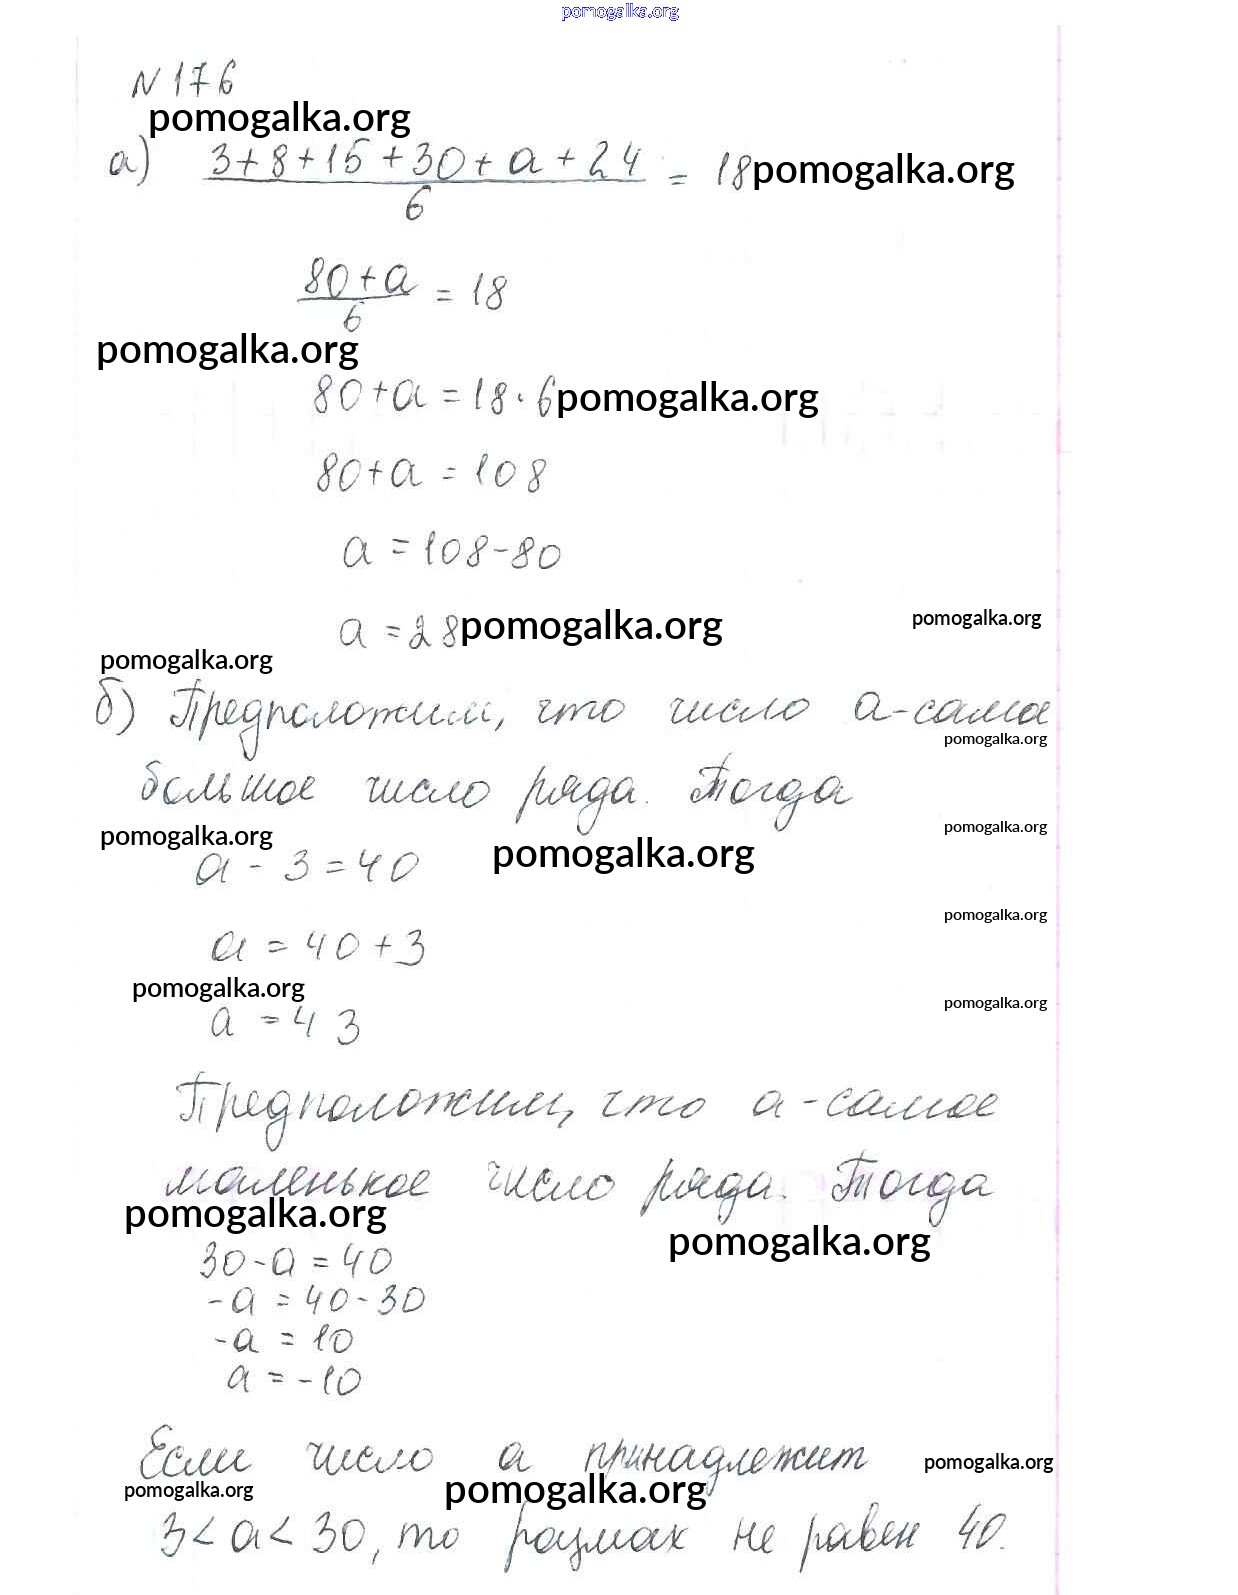 pomogalka.org
N 176
pomogalka.org
а) 3+8+15+30+a+24 = 18 pomogalka.org
6
80+a = 18
6
pomogalka.org
80+a = 18·6 pomogalka.org
80+a = 108
a = 108-80
a = 28 pomogalka.org pomogalka.org
pomogalka.org
б) Предположим, что число a-самое
pomogalka.org
большое число ряда. Тогда
pomogalka.org
pomogalka.org pomogalka.org
a - 3 = 40
pomogalka.org
a = 40+3
pomogalka.org pomogalka.org
a = 43
Предположим, что a-самое
маленькое число ряда. Тогда
pomogalka.org
pomogalka.org
30-a = 40
-a = 40-30
-a = 10
a = -10
Если число a принадлежит
pomogalka.org
pomogalka.org pomogalka.org
3< a< 30, то размах не равен 40.